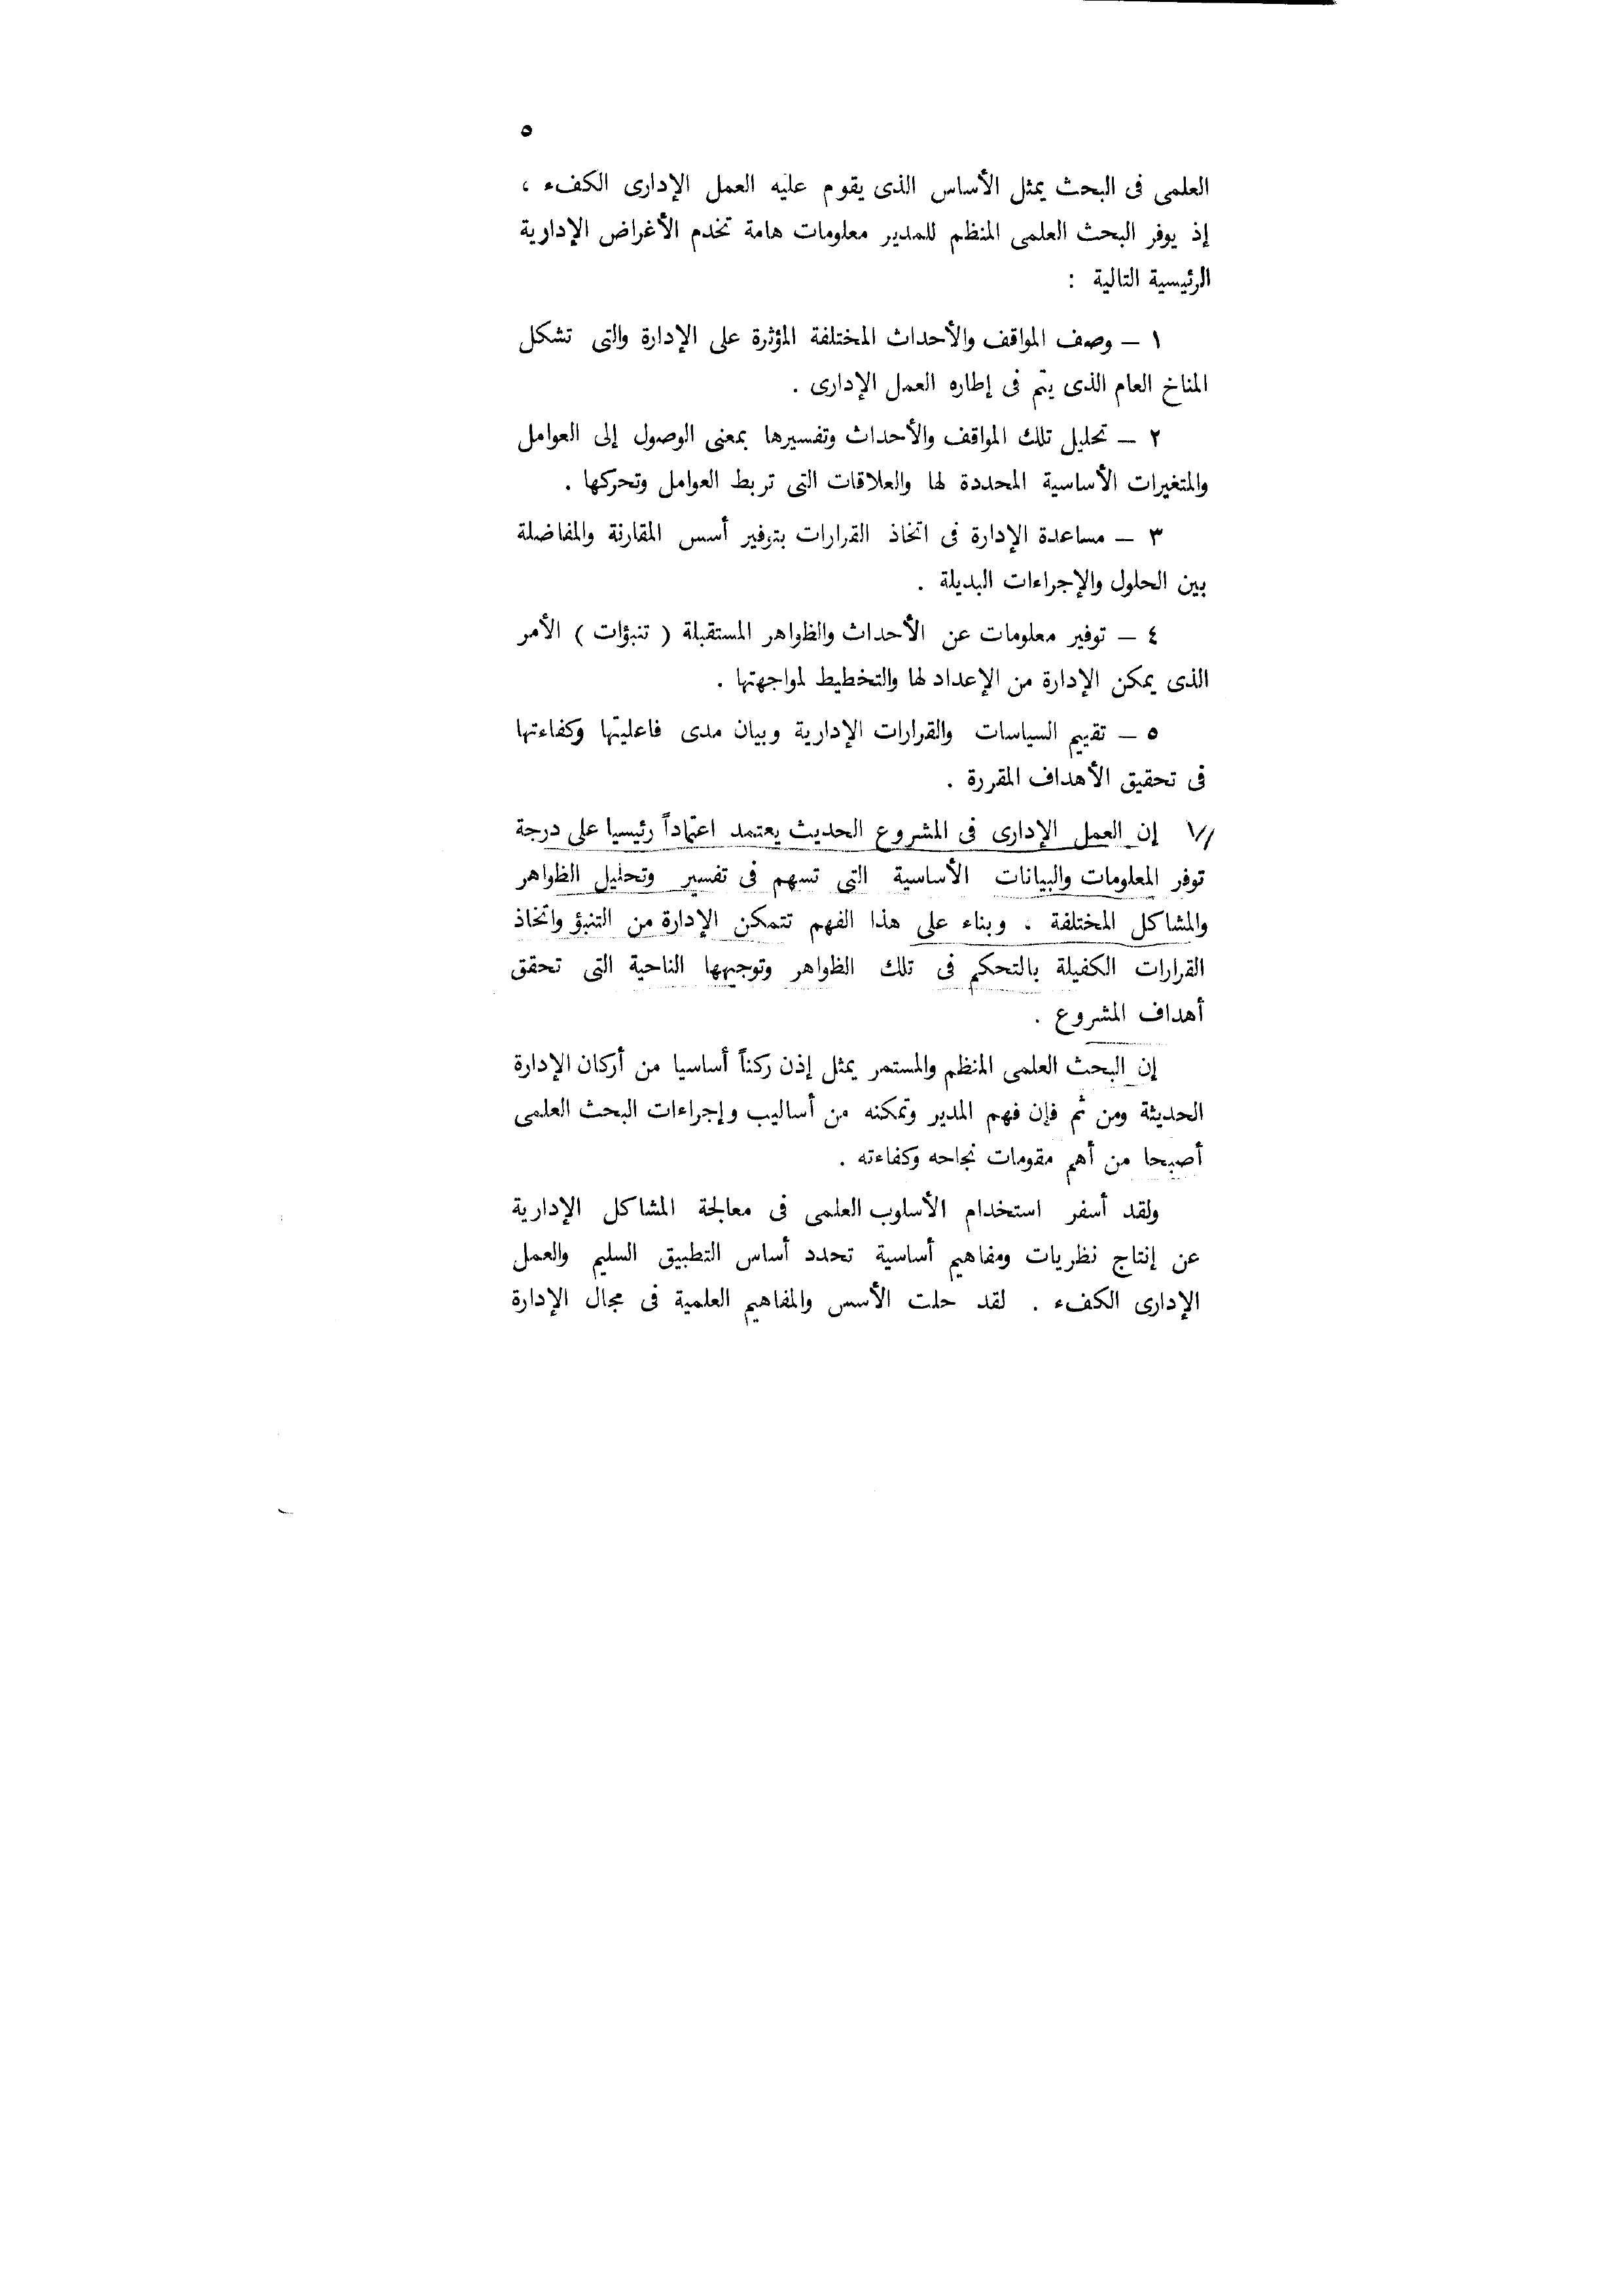 ٥
العلمى فى البحث يمثل الأساس الذى يقوم عليه العمل الإدارى الكفء ،
إذ يوفر البحث العلمى المنظم للمدير معلومات هامة تخدم الأغراض الإدارية
الرئيسية التالية :
١ – وصف المواقف والأحداث المختلفة المؤثرة على الإدارة والتى تشكل
المناخ العام الذى يتم فى إطاره العمل الإدارى .
٢ – تحليل تلك المواقف والأحداث وتفسيرها بمعنى الوصول إلى العوامل
والمتغيرات الأساسية المحددة لها والعلاقات التى تربط العوامل وتحركها .
٣ – مساعدة الإدارة فى اتخاذ القرارات بتوفير أسس المقارنة والمفاضلة
بين الحلول والإجراءات البديلة .
٤ – توفير معلومات عن الأحداث والظواهر المستقبلة ( تنبؤات ) الأمر
الذى يمكن الإدارة من الإعداد لها والتخطيط لمواجهتها .
٥ – تقييم السياسات والقرارات الإدارية وبيان مدى فاعليتها وكفاءتها
فى تحقيق الأهداف المقررة .
إن العمل الإدارى فى المشروع الحديث يعتمد اعتماداً رئيسيا على درجة
توفر المعلومات والبيانات الأساسية التى تسهم فى تفسير وتحليل الظواهر
والمشاكل المختلفة . وبناء على هذا الفهم تتمكن الإدارة من التنبؤ واتخاذ
القرارات الكفيلة بالتحكم فى تلك الظواهر وتوجيهها الناحية التى تحقق
أهداف المشروع .
إن البحث العلمى المنظم والمستمر يمثل إذن ركناً أساسيا من أركان الإدارة
الحديثة ومن ثم فإن فهم المدير وتمكنه من أساليب وإجراءات البحث العلمى
أصبحا من أهم مقومات نجاحه وكفاءته .
ولقد أسفر استخدام الأسلوب العلمى فى معالجة المشاكل الإدارية
عن إنتاج نظريات ومفاهيم أساسية تحدد أساس التطبيق السليم والعمل
الإدارى الكفء . لقد حلت الأسس والمفاهيم العلمية فى مجال الإدارة